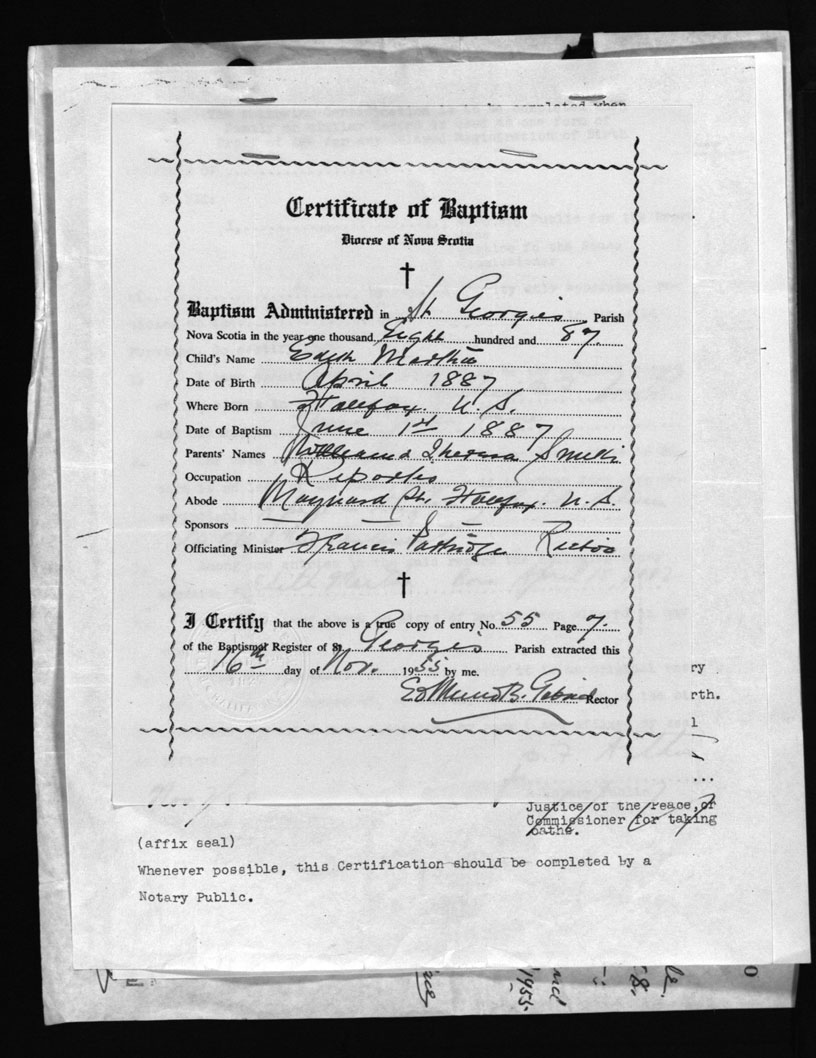 Certificate of Baptism
Diocese of Nova Scotia
Baptism Administered in St Georges Parish
Nova Scotia in the year one thousand Eight hundred and 87
Child's Name Edith Martha
Date of Birth April 1887
Where Born Halifax. N. S.
Date of Baptism June 1st 1887
Parents' Names William & Theresa Smith
Occupation Reporter
Abode Maynard St. Halifax. N. S.
Sponsors — — —
Officiating Minister Francis Partridge Rector
I Certify that the above is a true copy of entry No. 55 Page 7.
of the Baptismal Register of St. Georges Parish extracted this
16th day of Nov. 1955 by me.
Rector
ry
rth.
l
...
Justice of the Peace, or
Commissioner for taking
oaths.
(affix seal)
Whenever possible, this Certification should be completed by a
Notary Public.
1955